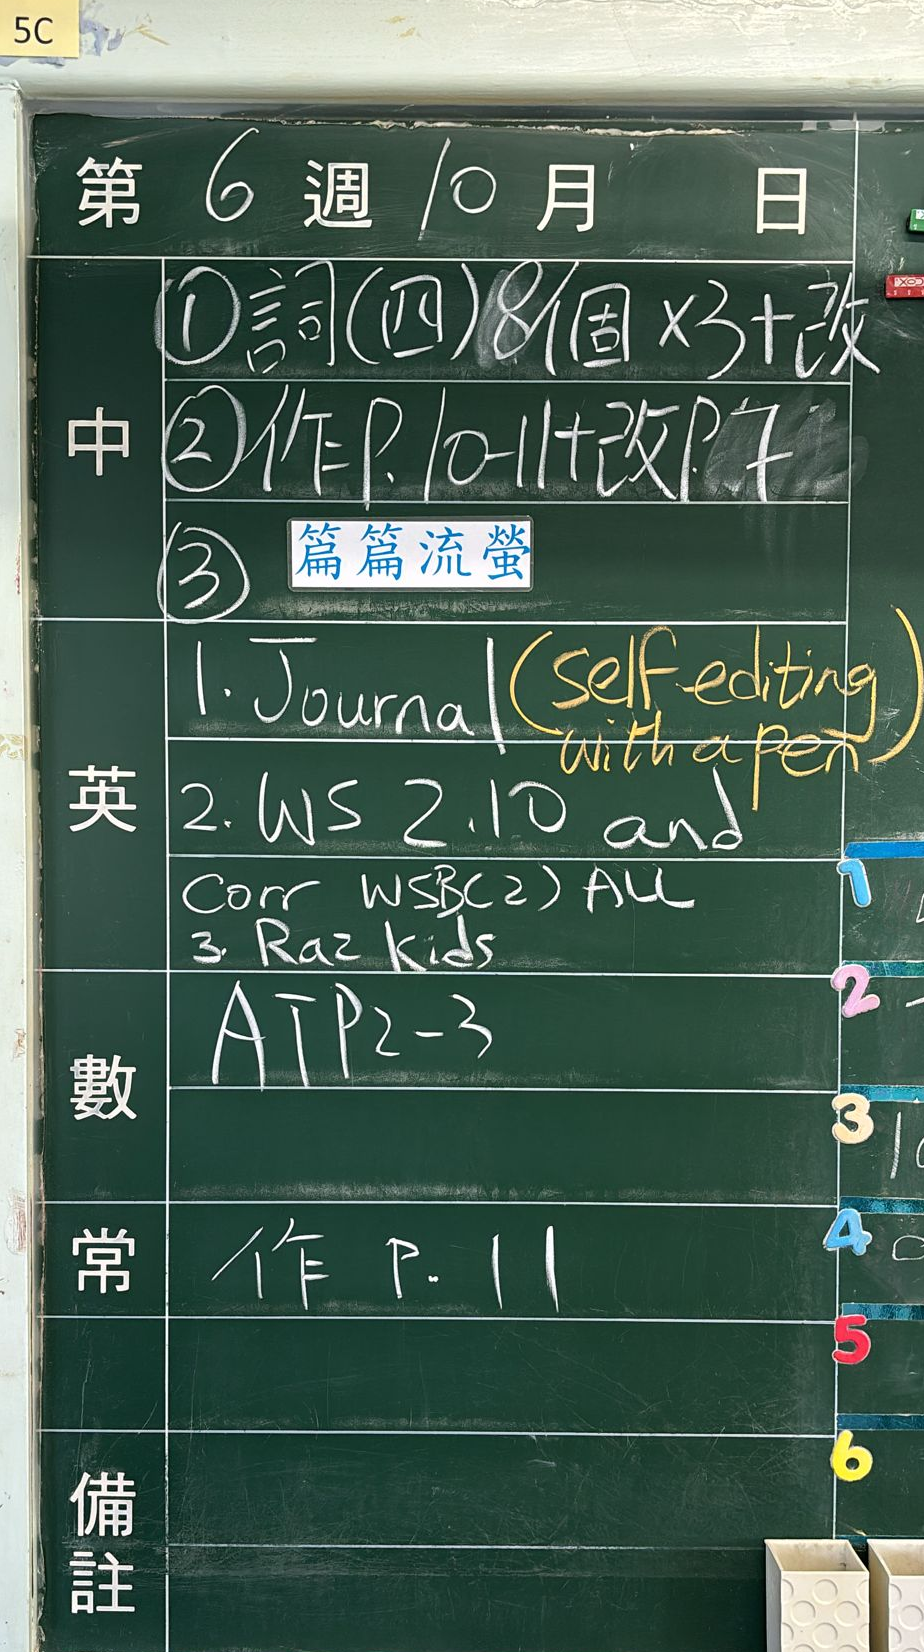 5C
第 6 週 10 月 日
中
① 詞(四)8個 x3+改
② 作P.10-11+改P.7
③ 篇篇流螢
英
1. Journal (self-editing
with a pen)
2. WS 2.10 and
Corr WSB(2) ALL
3. Raz kids
數
ATP2-3
常
作 P. 11
備註
1
2
3
4
5
6